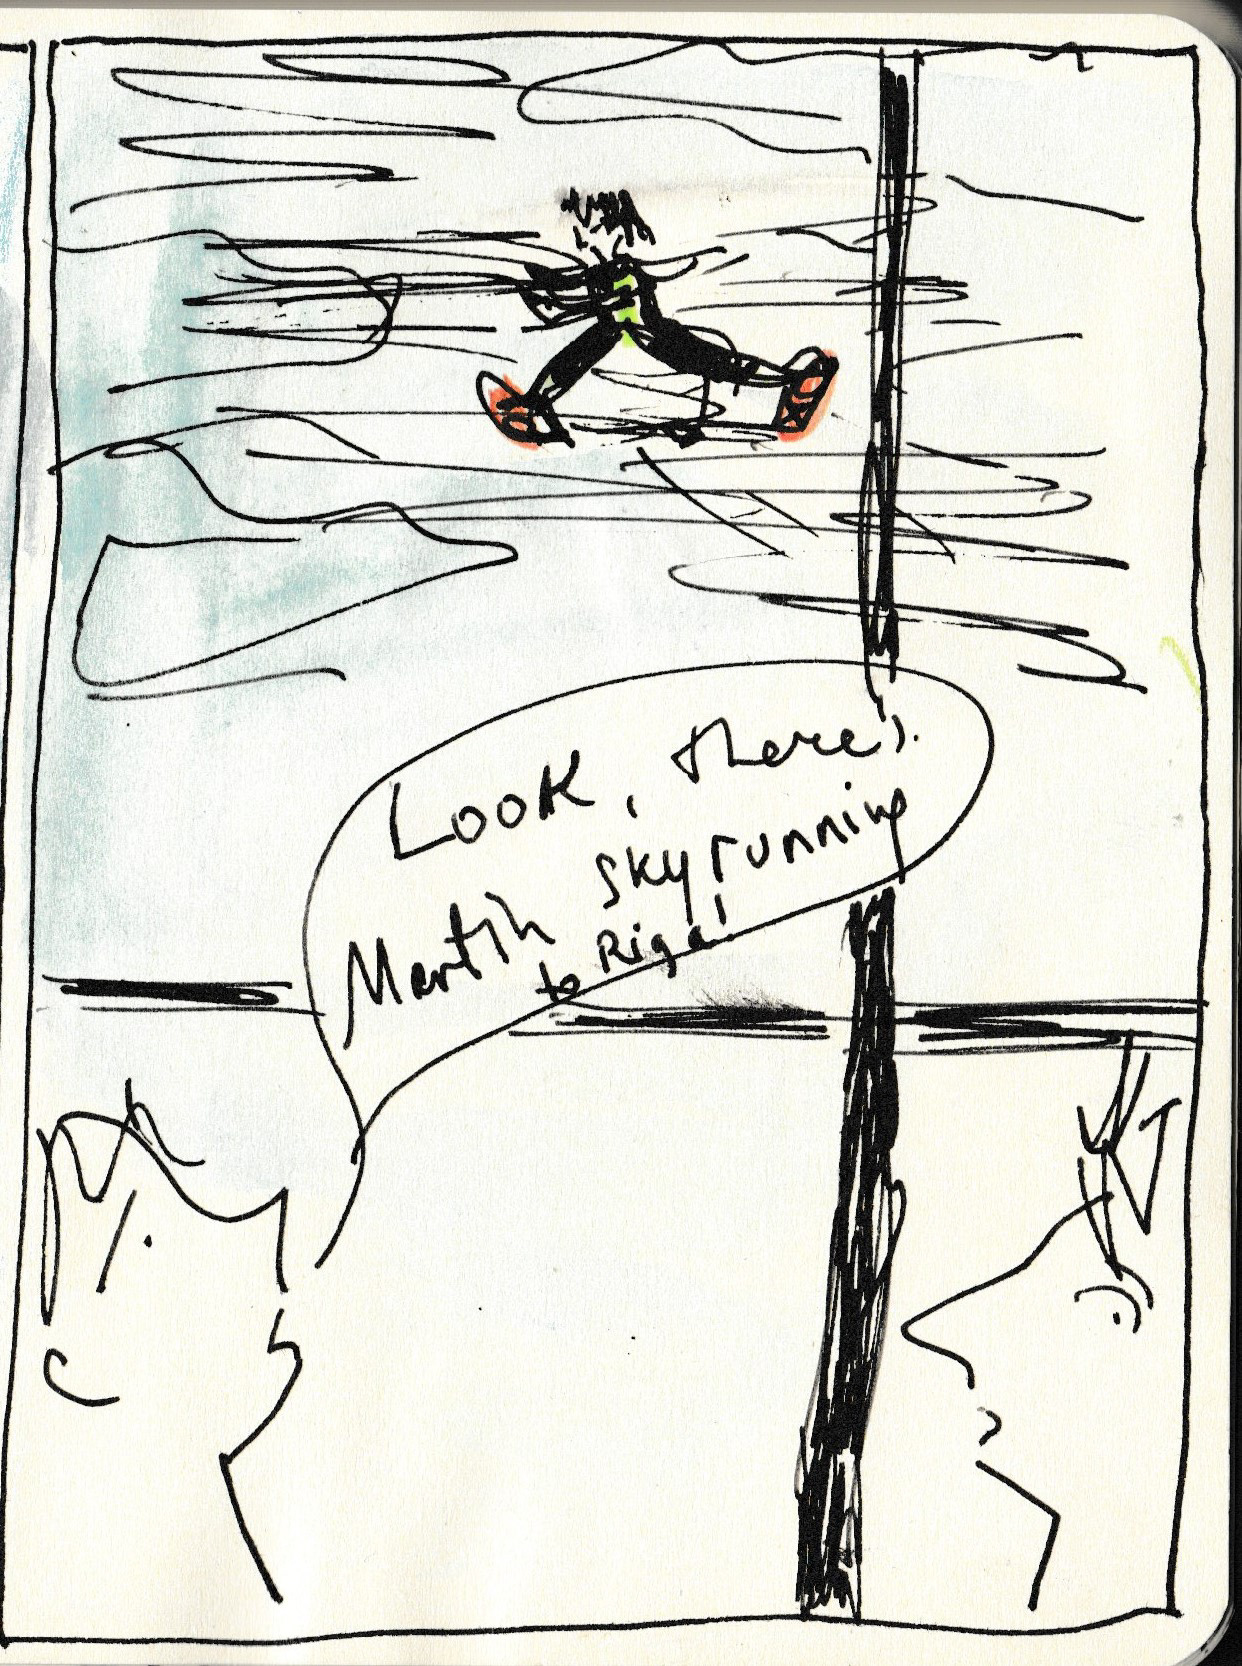 Look, there's
Martin skyrunning
to Riga!